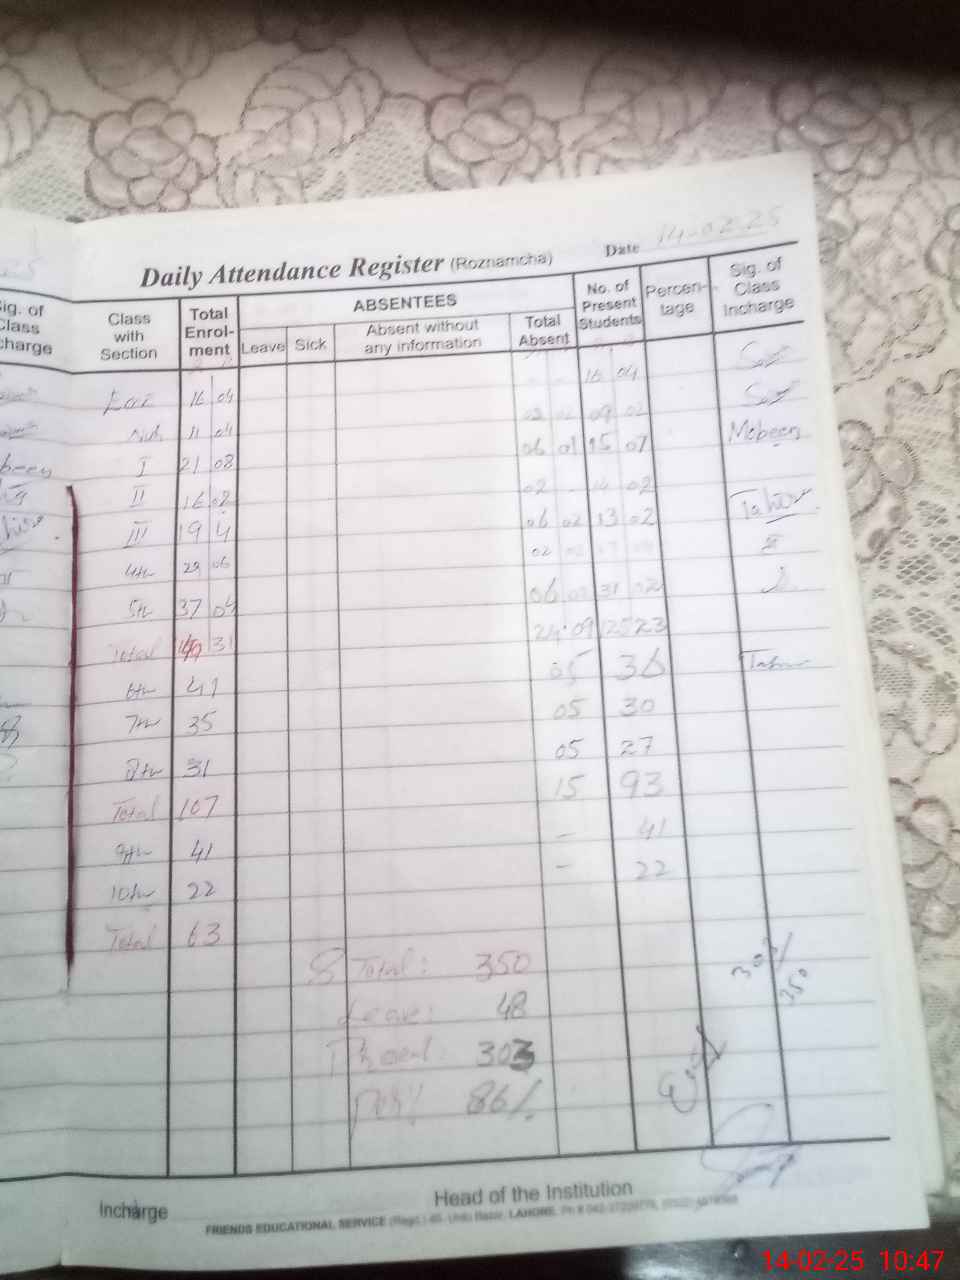 Date 14-02-25
Daily Attendance Register (Roznamcha)
Sig. of Class charge
Class with Section
Total Enrol- ment
ABSENTEES
Leave
Sick
Absent without any information
Total Absent
No. of Present Students
Percen- tage
Sig. of Class Incharge
16 04 16 04
11 04 02 09 02
I 21 08 06 01 15 07 Mobeen
II 16 02 02 14 02
III 19 4 06 02 13 02 Tahir
4th 29 06 02
5th 37 04 06 31 02
Total 31 24 09 125 23
6th 41 05 36
7th 35 05 30
8th 31 05 27
Total 107 15 93
9th 41 – 41
10th 22 – 22
Total 63
Total: 350
Leave: 48
Present: 303
86%
303/350
Incharge
Head of the Institution
FRIENDS EDUCATIONAL SERVICE (Regd.) LAHORE.
14-02-25 10:47